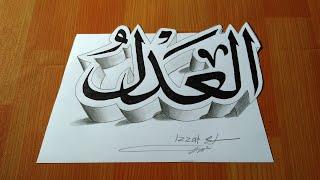 العَدْلُ
Izzat